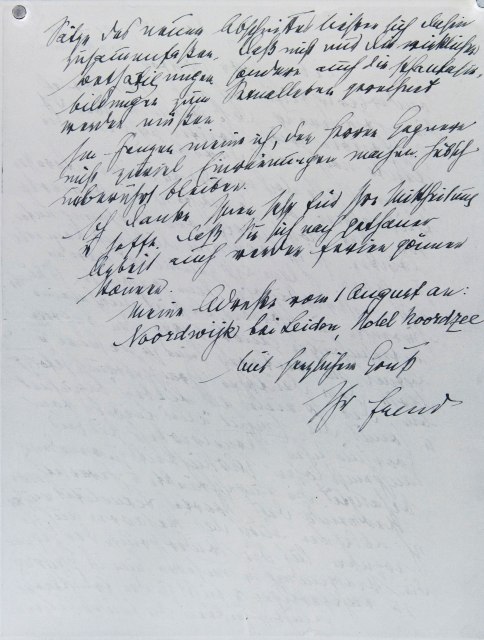 Sätze des neuen Abschnittes ließen sich dahin
zusammenfaßen, daß nicht nur die wirklichen
bethätigungen sondern auch die phantasie-
bildungen zum Sexualleben gerechnet
werden müßen.
Im Ganzen meine ich, den Herren Gegnern
nicht zuviel Einräumungen machen. Hübsch
unberührt bleiben.
Ich danke Ihnen sehr für Ihre Mittheilung
u hoffe, daß Sie sich nach gethaner
Arbeit auch werden ferien gönnen
können.
Meine Adresse vom 1 August an:
Noordwijk bei Leiden, Hotel Noordzee
Mit herzlichem Gruß
Ihr Freud